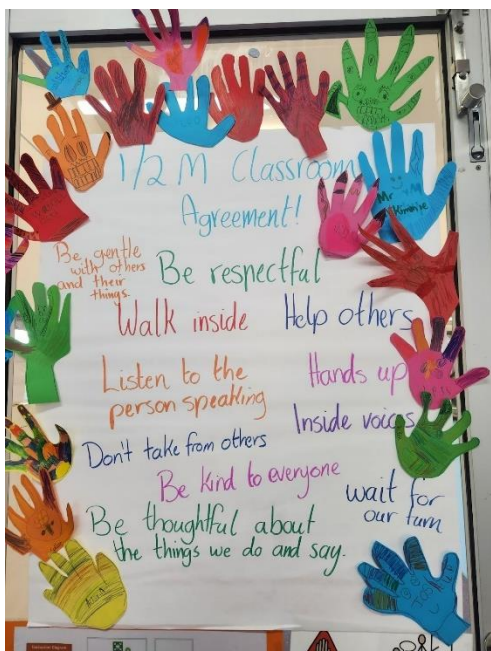 1/2 M Classroom
Agreement!
Be gentle
with others
and their
things.
Be respectful
Walk inside
Help others
Listen to the
person speaking
Hands up
Inside voices
Don't take from others
Be kind to everyone
wait for
our turn
Be thoughtful about
the things we do and say.
Mr